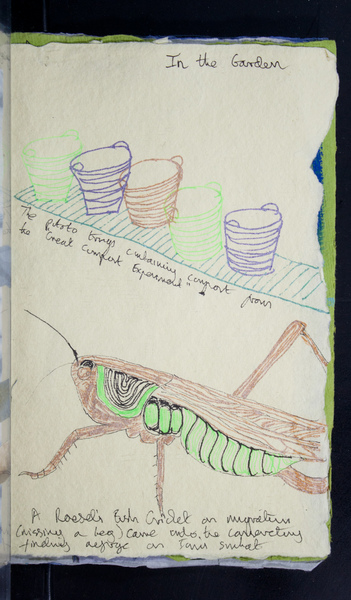 In the Garden
The potato bins containing compost from
the "Great Compost Experiment"
A Roesel's Bush Cricket on migration
(missing a leg) came into the conservatory
finding refuge on